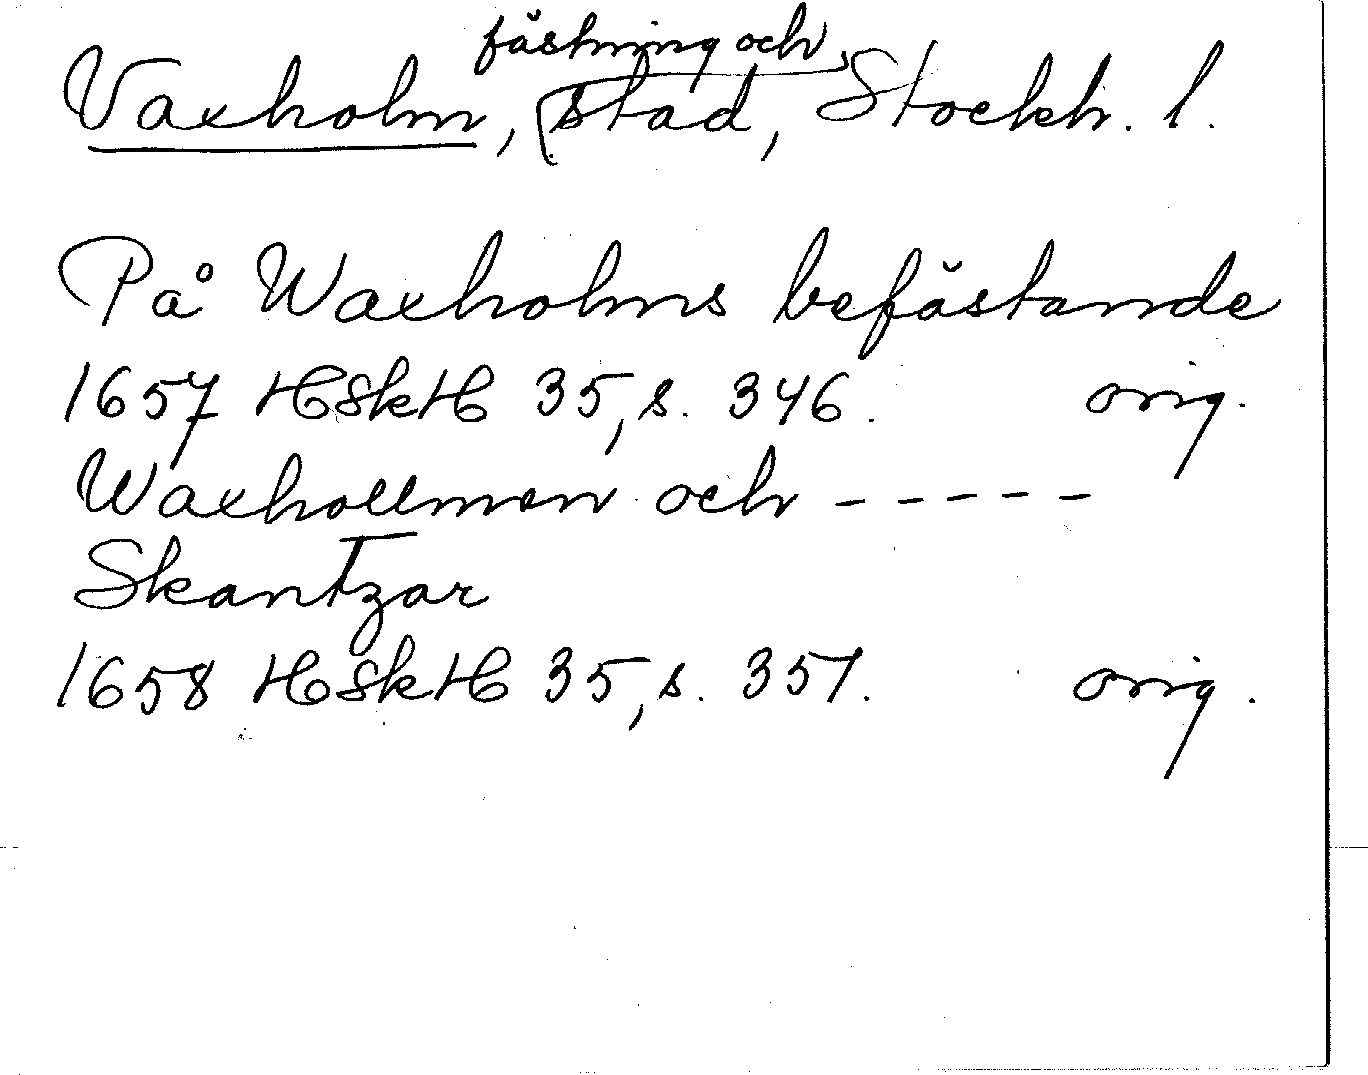 Vaxholm, fästning och stad, Stockh. l.
På Waxholms befästande
1657 HSkH 35, s. 346. orig.
Waxhollmen och - - - - -
Skantzar
1658 HSkH 35, s. 357. orig.